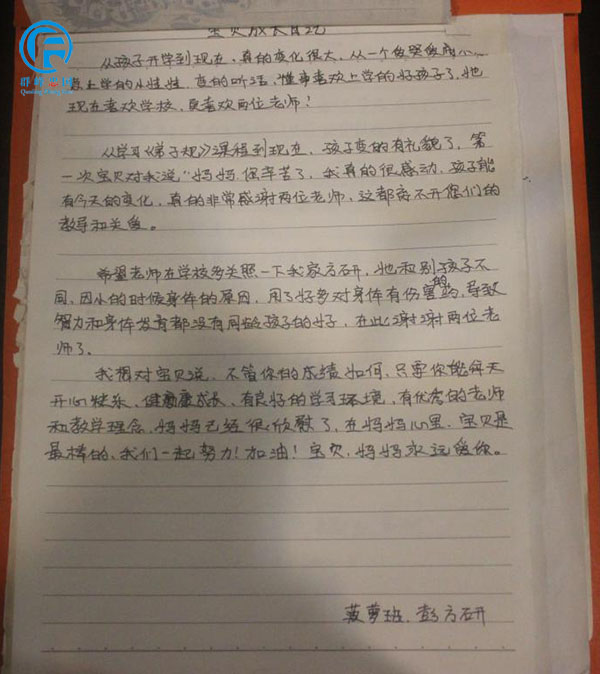 宝贝成长日记
从孩子开学到现在，真的变化很大，从一个做哭做闹
上学的小娃娃，变的听话，懂事喜欢上学的好孩子了，她
现在喜欢学校，更喜欢两位老师！
从学习《弟子规》课程到现在，孩子变的有礼貌了，第
一次宝贝对我说"妈妈您辛苦了，我真的很感动，孩子能
有今天的变化，真的非常感谢两位老师，这都离不开您们的
教导和关爱。
希望老师在学校多关照一下我家方研，她和别孩子不
同，因小的时候身体的原因，用了好多对身体有伤害的药，导致
智力和身体发育都没有同龄孩子的好，在此谢谢两位老
师了。
我想对宝贝说，不管你的成绩如何，只要你能每天
开心快乐，健康成长，有良好的学习环境，有优秀的老师
和教学理念，妈妈已经很欣慰了，在妈妈心里，宝贝是
最棒的，我们一起努力！加油！宝贝，妈妈永远爱你。
菠萝班．彭方研